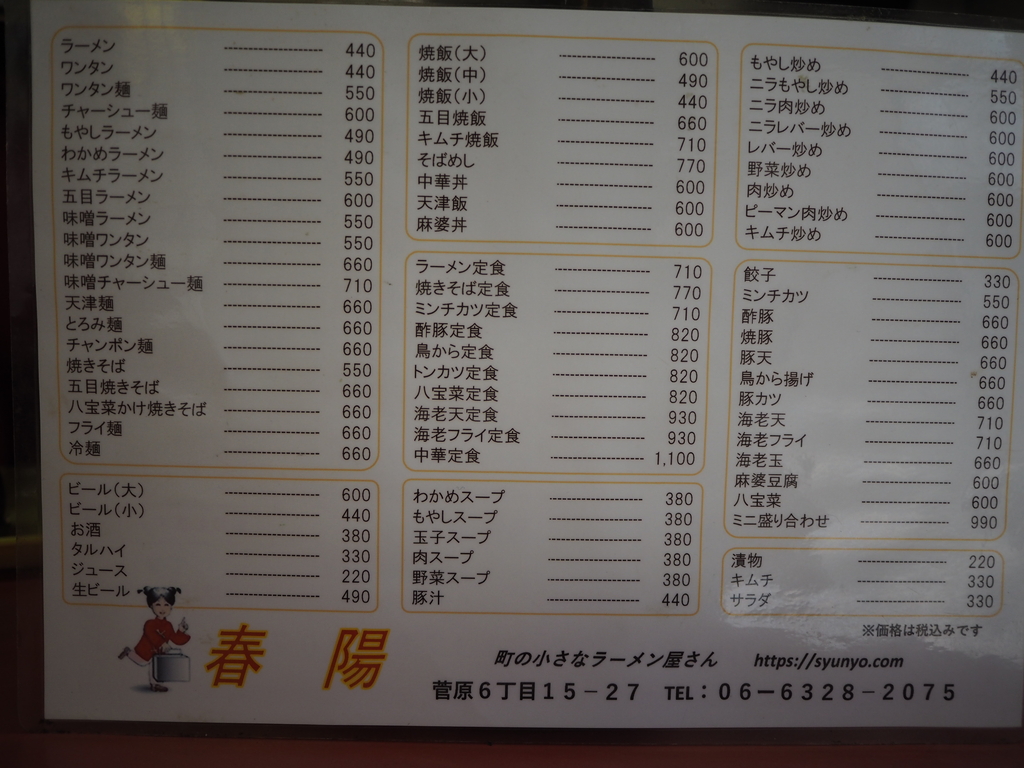 ラーメン 440
ワンタン 440
ワンタン麺 550
チャーシュー麺 600
もやしラーメン 490
わかめラーメン 490
キムチラーメン 550
五目ラーメン 600
味噌ラーメン 550
味噌ワンタン 550
味噌ワンタン麺 660
味噌チャーシュー麺 710
天津麺 660
とろみ麺 660
チャンポン麺 660
焼きそば 550
五目焼きそば 660
八宝菜かけ焼きそば 660
フライ麺 660
冷麺 660
ビール(大) 600
ビール(小) 440
お酒 380
タルハイ 330
ジュース 220
生ビール 490
焼飯(大) 600
焼飯(中) 490
焼飯(小) 440
五目焼飯 660
キムチ焼飯 710
そばめし 770
中華丼 600
天津飯 600
麻婆丼 600
ラーメン定食 710
焼きそば定食 770
ミンチカツ定食 710
酢豚定食 820
鳥から定食 820
トンカツ定食 820
八宝菜定食 820
海老天定食 930
海老フライ定食 930
中華定食 1,100
わかめスープ 380
もやしスープ 380
玉子スープ 380
肉スープ 380
野菜スープ 380
豚汁 440
もやし炒め 440
ニラもやし炒め 550
ニラ肉炒め 600
ニラレバー炒め 600
レバー炒め 600
野菜炒め 600
肉炒め 600
ピーマン肉炒め 600
キムチ炒め 600
餃子 330
ミンチカツ 550
酢豚 660
焼豚 660
豚天 660
鳥から揚げ 660
豚カツ 660
海老天 710
海老フライ 710
海老玉 660
麻婆豆腐 600
八宝菜 600
ミニ盛り合わせ 990
漬物 220
キムチ 330
サラダ 330
※価格は税込みです
春 陽
町の小さなラーメン屋さん https://syunyo.com
菅原６丁目１５－２７ TEL：０６ー６３２８－２０７５